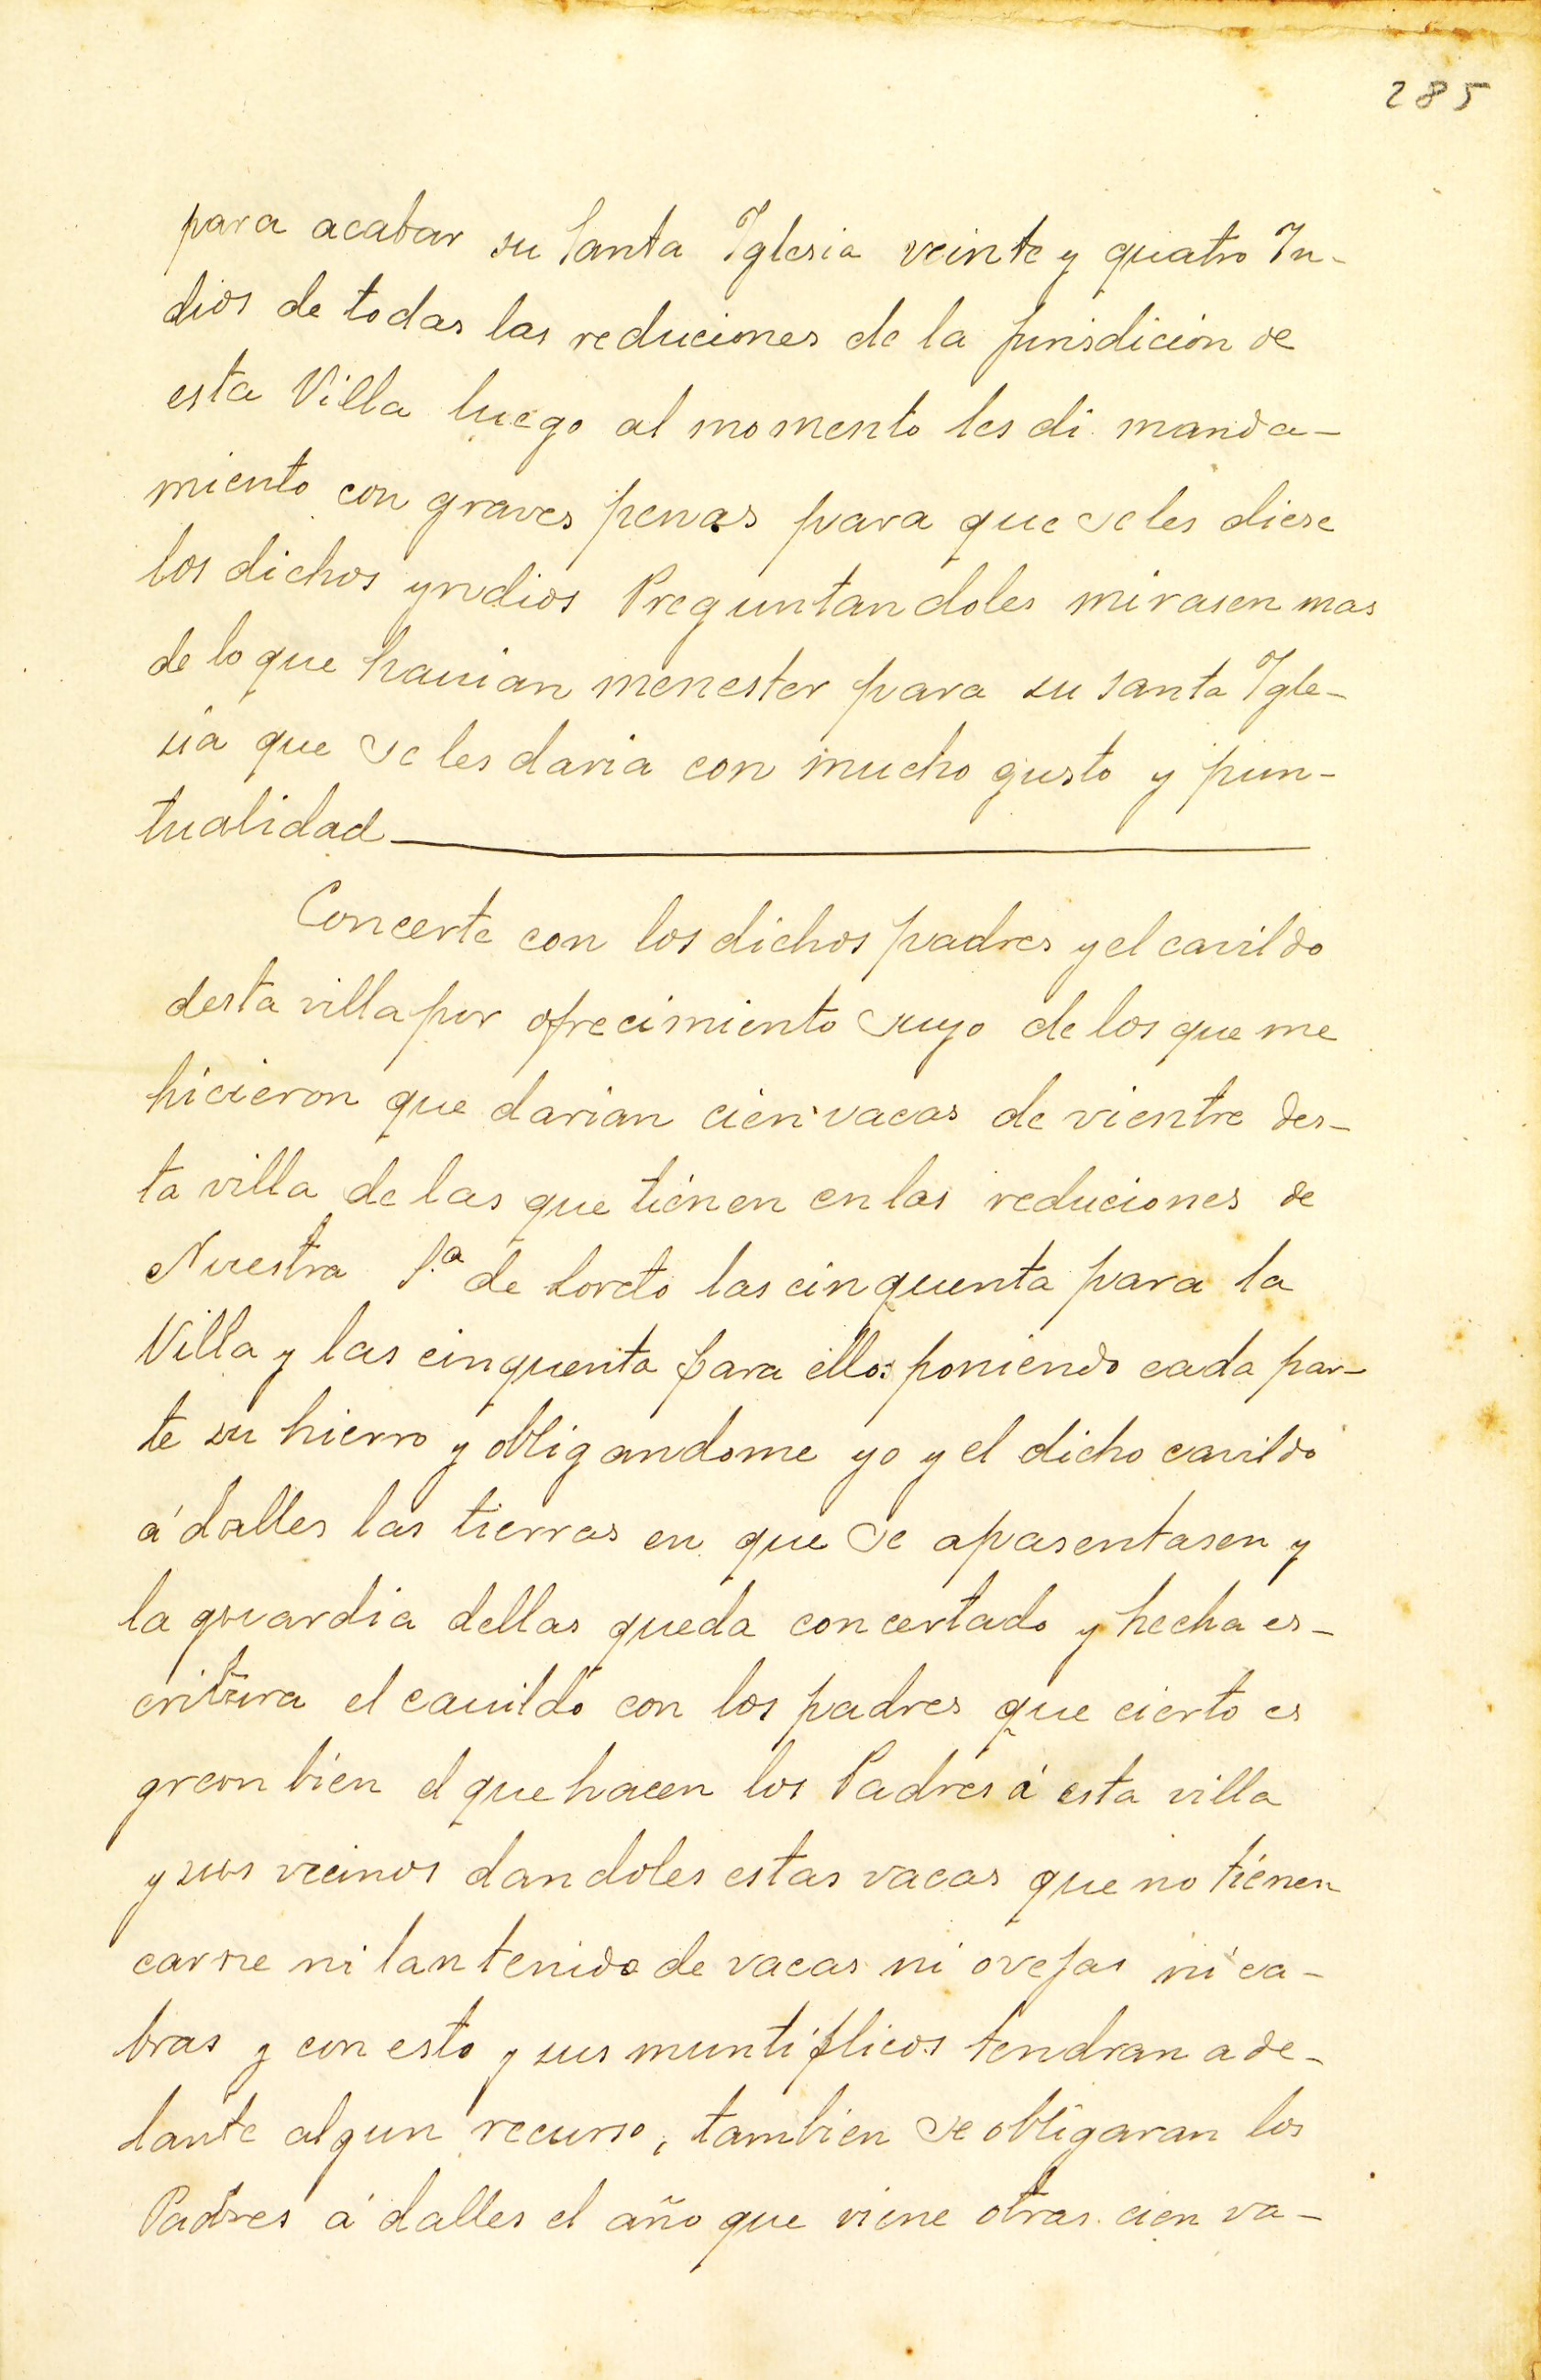 285
para acabar su Santa Iglesia veinte y quatro In-
dios de todas las reduciones de la jurisdicion de
esta Villa luego al momento les di manda-
miento con graves penas para que se les diese
los dichos yndios Preguntandoles mirasen mas
de lo que hauian menester para su santa Igle-
sia que se les daria con mucho gusto y pun-
tualidad
Concerte con los dichos padres y el cavildo
desta villa por ofrecimiento suyo de los que me
hicieron que darian cien vacas de vientre des-
ta villa de las que tienen en las reduciones de
Nuestra S.ª de Loreto las cinquenta para la
Villa y las cinquenta para ellos poniendo cada par-
te su hierro y obligandome yo y el dicho cavildo
á dalles las tierras en que se apasentasen y
la guardia dellas queda concertado y hecha es-
critura el cauildo con los padres que cierto es
gran bien el que hacen los Padres á esta villa
y sus vecinos dandoles estas vacas que no tienen
carne ni lan tenido de vacas ni ovejas ni ca-
bras y con esto y sus muntiplicos tendran ade-
lante algun recurso, tambien se obligaran los
Padres á dalles el año que viene otras cien va-